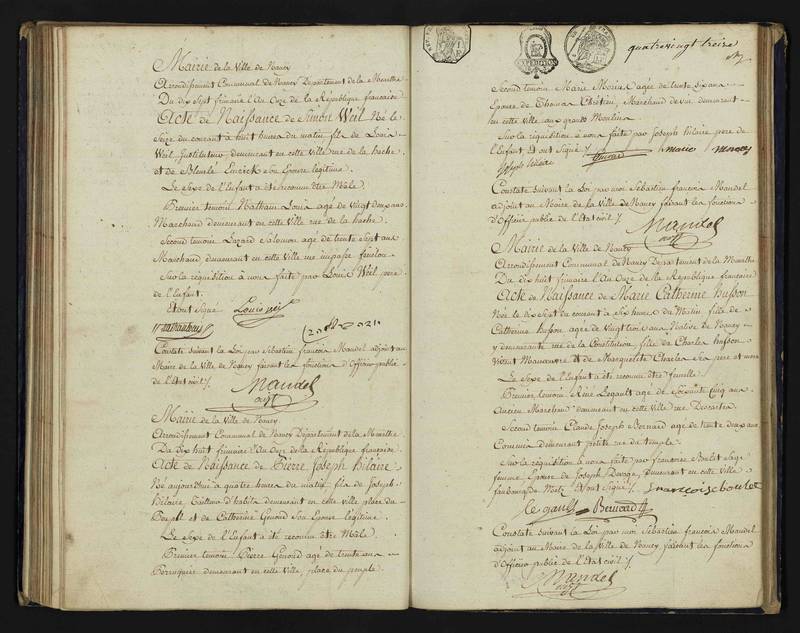 Mairie de la Ville de Nancy
Arrondissement Communal de Nancy Departement de la Meurthe
Du dix Sept frimaire l'An Onze de la République francaise
Acte de Naissance de Simon Weil Né le
Seize du courant à huit heures du matin fils de Louis
Weil, Instituteur, demeurant en cette ville rue de la hache
et de Son Epouse légitime.
Le Sexe de l'Enfant a été reconnu être Mâle.
Premier temoin Nathan Louis agé de Vingt deux ans
Marchand demeurant en cette Ville rue de la hache.
Second temoin Lazard Salomon agé de trente Sept ans
Marchand demeurant en cette Ville rue impasse
Sur la réquisition à nous faite par Louis Weil pere
de l'Enfant.
Et ont Signé
Constaté Suivant la Loi par Sébastien francois Mandel adjoint au
Maire de la Ville de Nancy faisant les fonctions d'Officier public
de l'Etat civil /.
Mandel
adjt
Mairie de la Ville de Nancy
Arrondissement Communal de Nancy Departement de la Meurthe
Du dix huit frimaire l'An Onze de la République francaise.
Acte de Naissance de Pierre Joseph hilaire
Né aujourd'hui à quatre heures du matin fils de Joseph
hilaire, Tailleur d'habits demeurant en cette ville place du
Peuple et de Catherine Genod Son Epouse légitime.
Le Sexe de l'Enfant a été reconnu être Mâle.
Premier temoin Pierre Genod agé de trente ans
Perruquier demeurant en cette Ville, place du peuple.
quatrevingt treize
Second temoin Marie agée de trente six ans
Epouse de Thomas Chrétien, Marchand de vin demeurant
en cette ville aux grands Moulins
Sur la réquisition à nous faite par Joseph hilaire pere de
l'Enfant Et ont Signé /.
Joseph hilaire
Constaté Suivant la Loi par moi Sébastien francois Mandel
adjoint au Maire de la Ville de Nancy faisant les fonctions
d'Officier public de l'Etat civil /.
Mandel
adjt
Mairie de la Ville de Nancy
Arrondissement Communal de Nancy Departement de la Meurthe
Du dix huit frimaire l'An Onze de la République francaise
Acte de Naissance de Marie Catherine husson
Née le dix Sept du courant à Six heures du Matin fille de
Catherine husson agée de vingt trois ans Native de Nancy
y demeurante rue de la Constitution, fille de Charles husson
vivant Manœuvre et de Marguerite Charles Ses pere et mere
Le Sexe de l'Enfant a été reconnu être femelle.
Premier temoin René Legault agé de Soixante Cinq ans
Ancien Marchand demeurant en cette Ville rue Descartes.
Second temoin Claude Joseph Bernard agé de trente deux ans
Commis demeurant petite rue du temple.
Sur la réquisition à nous faite par francoise Boulet Sage
femme Epouse de Joseph demeurant en cette Ville
faubourg de Metz Et ont Signé /. francoise boulet
le gault Bernard
Constaté Suivant la Loi par moi Sébastien francois Mandel
adjoint au Maire de la Ville de Nancy, faisant les fonctions
d'Officier public de l'Etat civil /.
Mandel
adjt